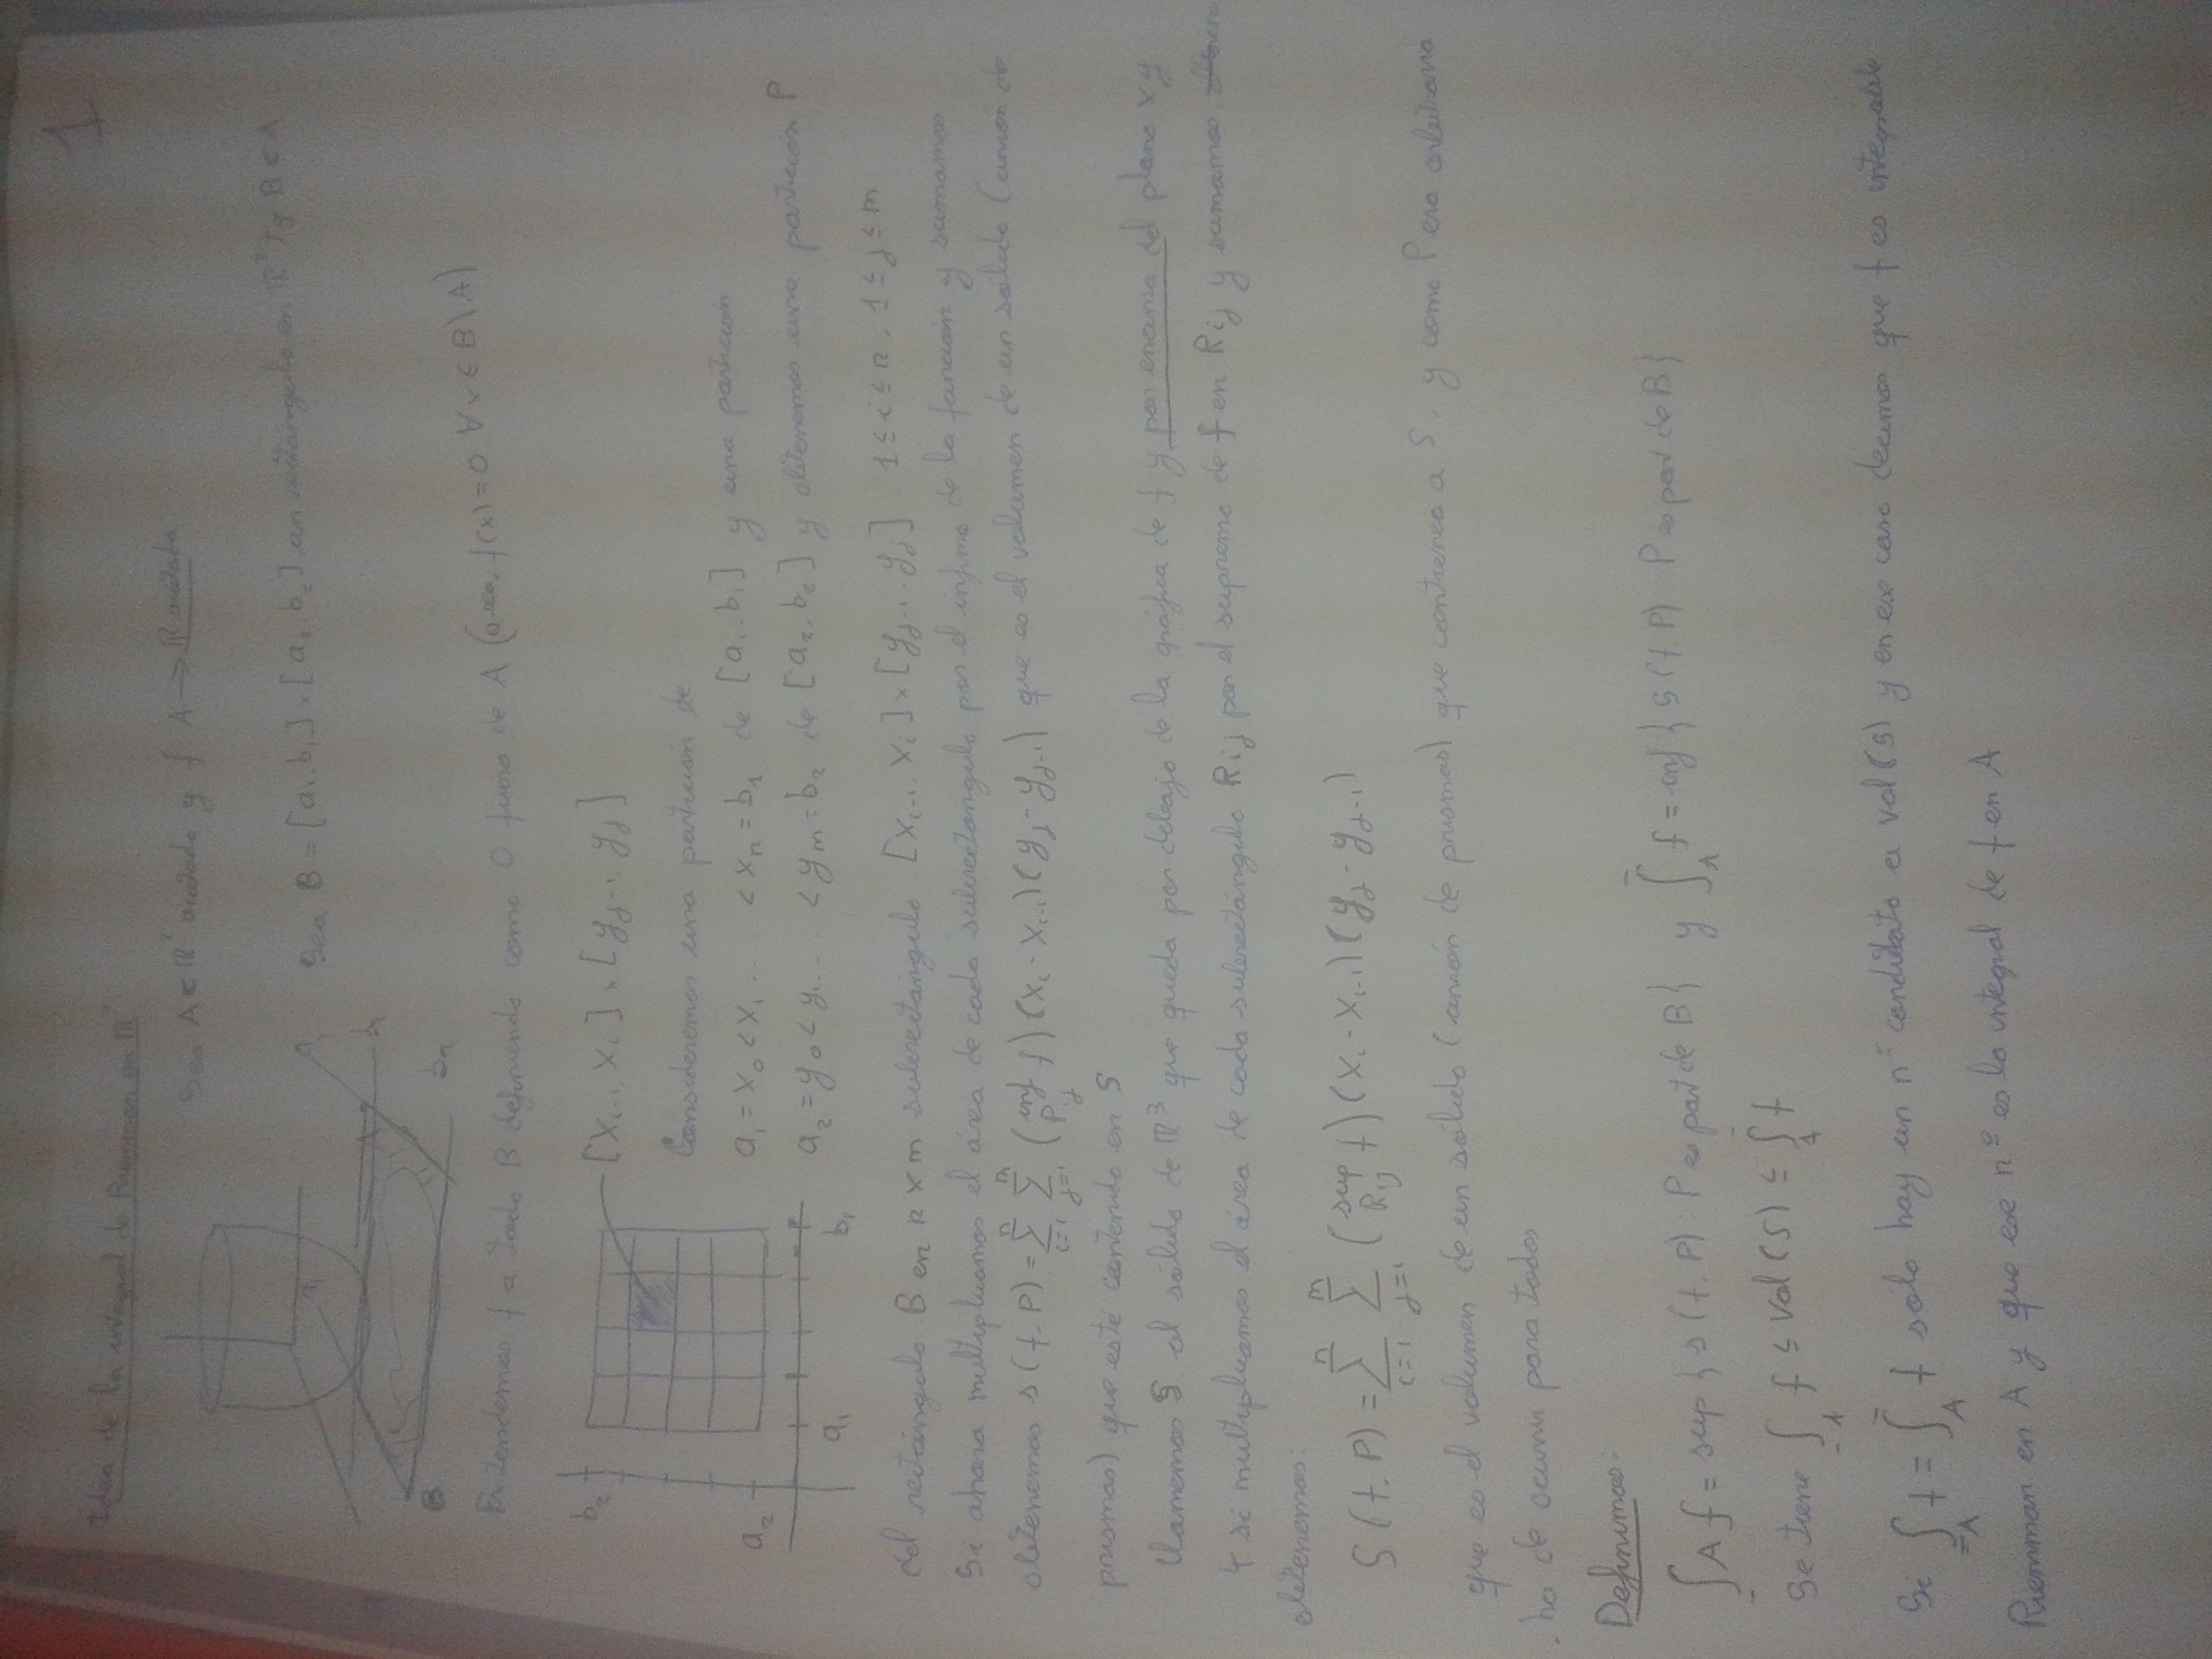 1
Idea de la integral de Riemann en ℝⁿ
Sea A ⊂ ℝ² acotado y f A → ℝ acotada
Sea B = [a₁, b₁] × [a₂, b₂] un rectángulo en ℝ² tq B ⊂ A
A₁
b₁
a₁
B
Extendemos f a todo B definiendo como 0 fuera de A (o sea, f(x) = 0 ∀ x ∈ B \ A)
[xᵢ₋₁, xᵢ] × [yⱼ₋₁, yⱼ]
b₂
a₂
a₁
b₁
Consideremos una partición de
a₁ = x₀ < x₁ ... < xₙ = b₁ de [a₁, b₁] y una partición
a₂ = y₀ < y₁ ... < yₘ = b₂ de [a₂, b₂] y obtenemos una partición P
del rectángulo B en n × m subrectángulo [xᵢ₋₁, xᵢ] × [yⱼ₋₁, yⱼ], 1 ≤ i ≤ n, 1 ≤ j ≤ m
Si ahora multiplicamos el área de cada subrectángulo por el ínfimo de la función y sumamos
obtenemos s(f, P) = Σᵢ₌₁ⁿ Σⱼ₌₁ᵐ (inf f) (xᵢ - xᵢ₋₁)(yⱼ - yⱼ₋₁) que es el volumen de un sólido (unión de
prismas) que esté contenido en S
Llamemos S al sólido de ℝ³ que queda por debajo de la gráfica de f y por encima del plano xy
Y si multiplicamos el área de cada subrectángulo Rᵢⱼ por el supremo de f en Rᵢⱼ y sumamos
obtenemos:
S(f, P) = Σᵢ₌₁ⁿ Σⱼ₌₁ᵐ (sup_Rᵢⱼ f) (xᵢ - xᵢ₋₁)(yⱼ - yⱼ₋₁)
que es el volumen de un sólido (unión de prismas) que contienea a S, y como P era arbitraria
ha de ocurrir para todas
Definimos:
∫A f = sup { s(f, P): P es part de B } y ∫_A f = inf { S(f, P) P es part de B }
Se tiene ∫_A f ≤ Vol(S) ≤ ∫_A f
Si ∫_A f = ∫_A f solo hay un nº candidato a vol(S) y en ese caso decimos que f es integrable
Riemman en A y que ese nº es la integral de f en A